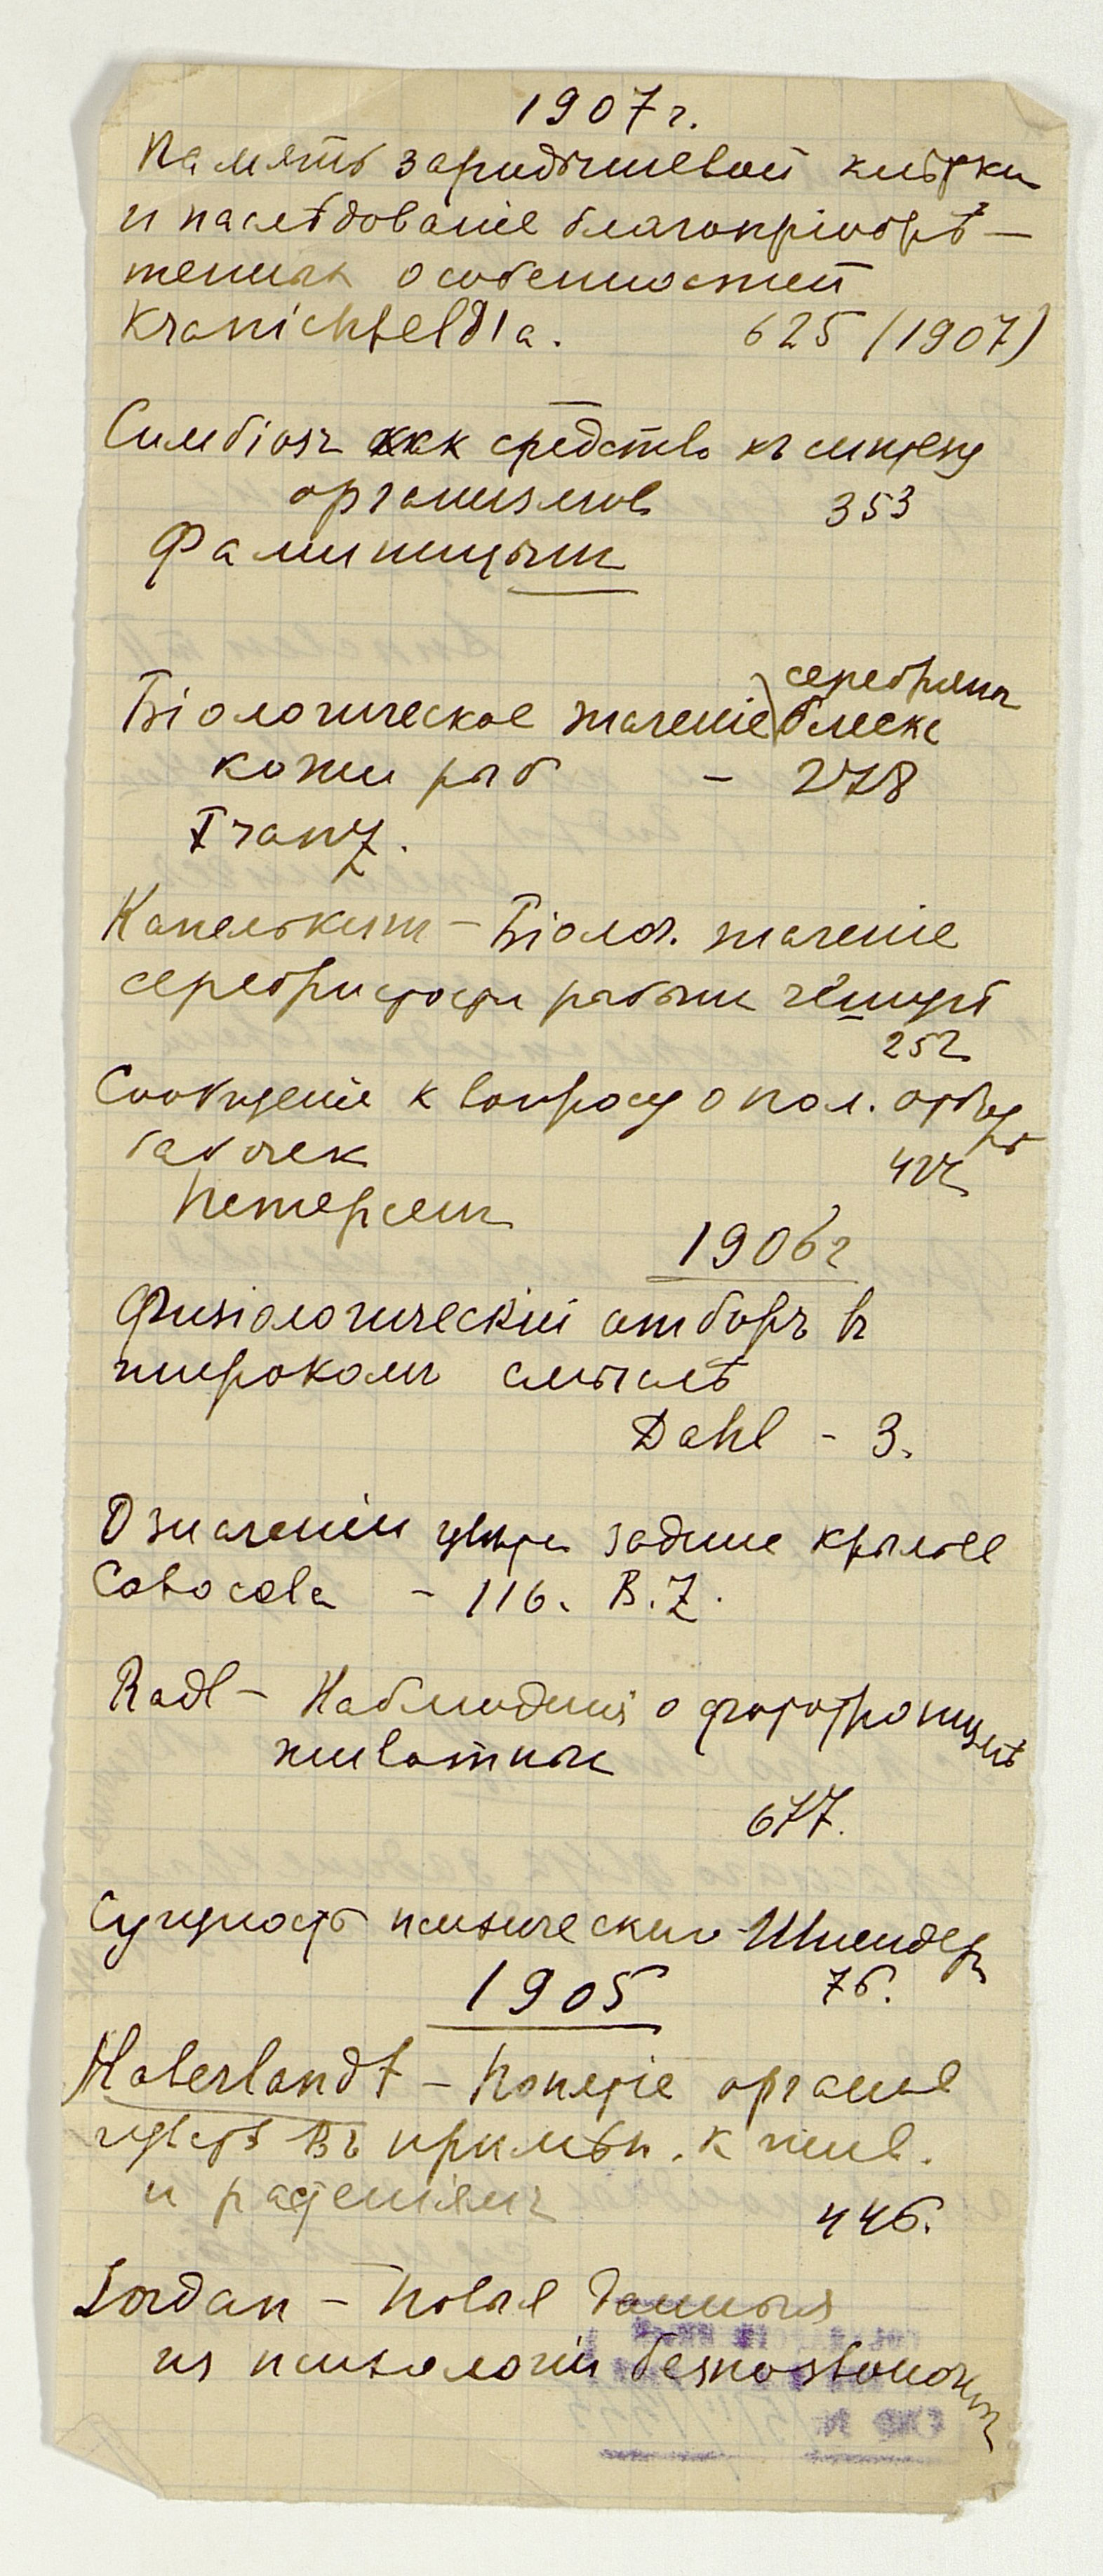 1907 г.
Память зародышевой клѣтки
и наслѣдованіе благопріобрѣ-
тенных особенностей
Kranichfeld'a. 625 (1907)
Симбіозъ как средство къ синтезу
организмов 353
Фаминцынъ
серебрян
Біологическое значеніе блеска
кожи рыб - 278
Franz.
Капелькинъ - Біолог. значеніе
серебристости рыбьей чешуи
252
Сообщеніе к вопросу о пол. отборѣ
бабочек
Петерсенъ
1906 г
Физіологическій отборъ въ
широкомъ смыслѣ
Dahl - 3.
О значеніи цвѣта задних крыльев
Catocala - 116. B.Z.
Radl - Наблюденія о фототропизмѣ
животных
677.
Сущность психическаго - Шнейдер
76.
1905
Haberlandt - Понятіе органов
чувств въ примѣн. к жив.
и растеніямъ 446.
Jordan - Новыя данныя
из психологіи безпозвоночных